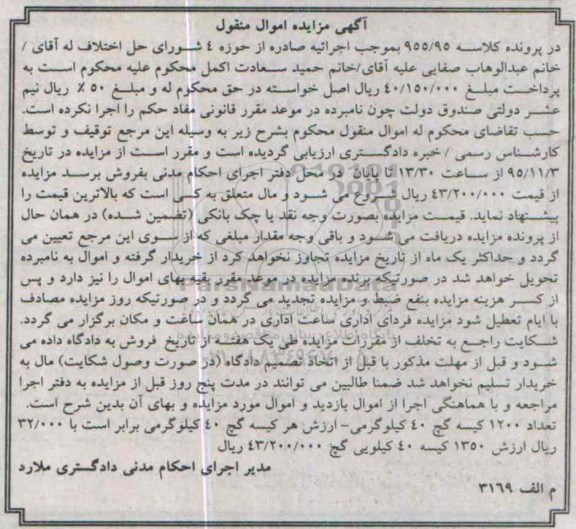 آگهی مزایده اموال منقول
در پرونده کلاسه ۹۵۵/۹۵ بموجب اجرائیه صادره از حوزه ٤ شورای حل اختلاف له آقای /
خانم عبدالوهاب صفایی علیه آقای/خانم حمید سعادت اکمل محکوم علیه محکوم است به
پرداخت مبلغ ٤٠/١٥٠/٠٠٠ ریال اصل خواسته در حق محکوم له و مبلغ ٥٠ ٪ ریال نیم
عشر دولتی صندوق دولت چون نامبرده در موعد مقرر قانونی مفاد حکم را اجرا نکرده است.
حسب تقاضای محکوم له اموال منقول محکوم بشرح زیر به وسیله این مرجع توقیف و توسط
کارشناس رسمی / خبره دادگستری ارزیابی گردیده است و مقرر است از مزایده در تاریخ
۹۵/۱۱/۳ از ساعت ۱۳/۳۰ تا پایان در محل دفتر اجرای احکام مدنی بفروش برسد مزایده
از قیمت ٤٣/٢٠٠/٠٠٠ ریال شروع می شود و مال متعلق به کسی است که بالاترین قیمت را
پیشنهاد نماید. قیمت مزایده بصورت وجه نقد یا چک بانکی (تضمین شده) در همان حال
از پرونده مزایده دریافت می شود و باقی وجه مقدار مبلغی که از سوی این مرجع تعیین می
گردد و حداکثر یک ماه از تاریخ مزایده تجاوز نخواهد کرد از خریدار گرفته و اموال به نامبرده
تحویل خواهد شد در صورتیکه برنده مزایده در موعد مقرر بقیه بهای اموال را نیز دارد و پس
از کسر هزینه مزایده بنفع ضبط و مزایده تجدید می گردد و در صورتیکه روز مزایده مصادف
با ایام تعطیل شود مزایده فردای اداری ساعت اداری در همان ساعت و مکان برگزار می گردد.
شکایت راجع به تخلف از مقررات مزایده طی یک هفته از تاریخ فروش به دادگاه داده می
شود و قبل از مهلت مذکور با قبل از اتخاذ تصمیم دادگاه (در صورت وصول شکایت) مال به
خریدار تسلیم نخواهد شد ضمنا طالبین می توانند در مدت پنج روز قبل از مزایده به دفتر اجرا
مراجعه و با هماهنگی اجرا از اموال بازدید و اموال مورد مزایده و بهای آن بدین شرح است.
تعداد ۱۲۰۰ کیسه گچ ٤٠ کیلوگرمی- ارزش هر کیسه گچ ٤٠ کیلوگرمی برابر است با ۳۲/۰۰۰
ریال ارزش ۱۳۵۰ کیسه ٤٠ کیلویی گچ ٤٣/٢٠٠/٠٠٠ ریال
مدیر اجرای احکام مدنی دادگستری ملارد
م الف ۳۱۶۹
ParsNamadData